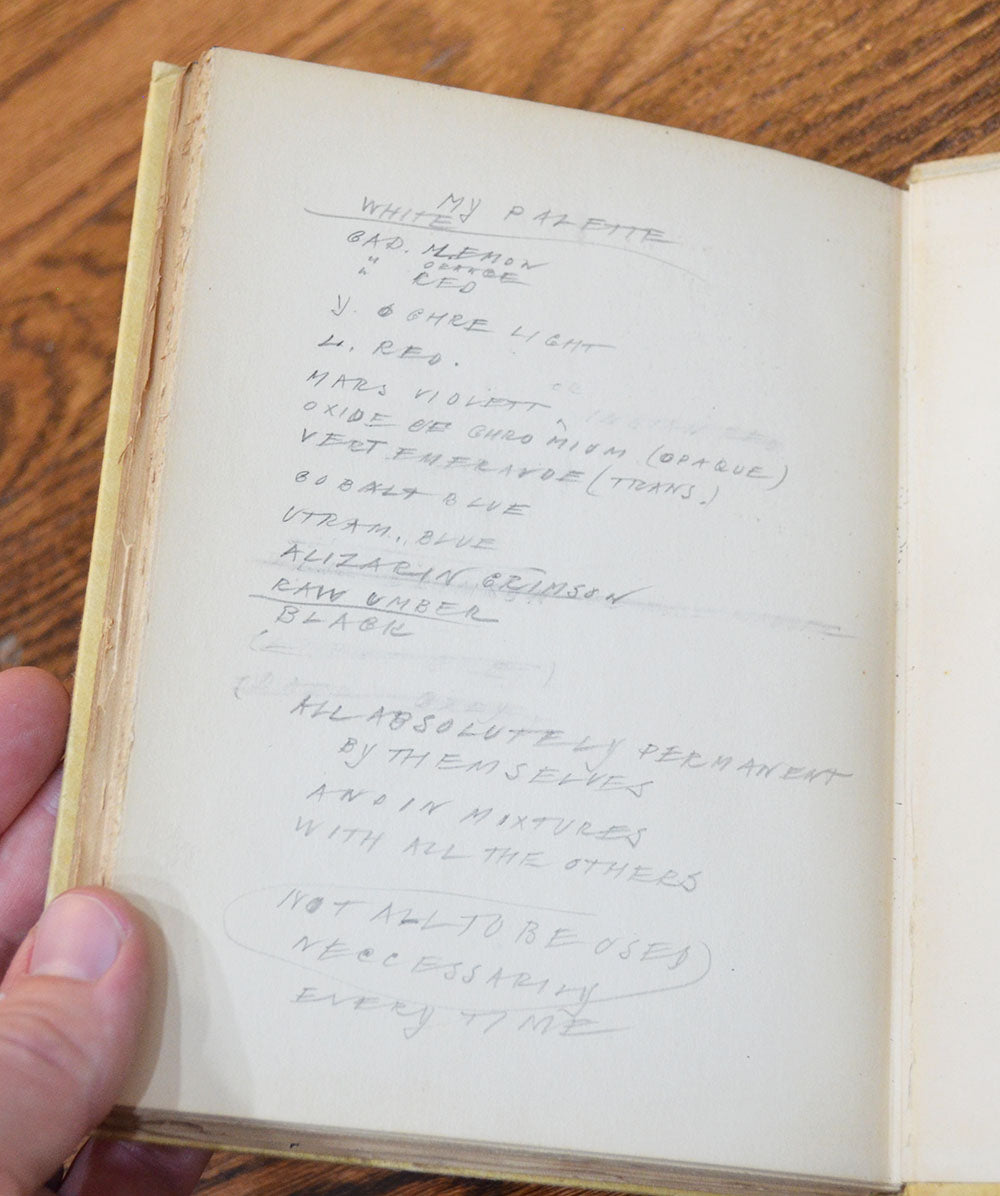 MY PALETTE
WHITE
CAD. LEMON
" ORANGE
" RED
Y. OCHRE LIGHT
L. RED.
MARS VIOLETT
OR INDIAN RED
OXIDE OF CHROMIUM (OPAQUE)
VERT EMERAUDE (TRANS.)
COBALT BLUE
UTRAM. BLUE
ALIZARIN CRIMSON
RAW UMBER
BLACK
ALL ABSOLUTELY PERMANENT
BY THEMSELVES
AND IN MIXTURES
WITH ALL THE OTHERS
NOT ALL TO BE USED
NECCESSARILY
EVERY TIME